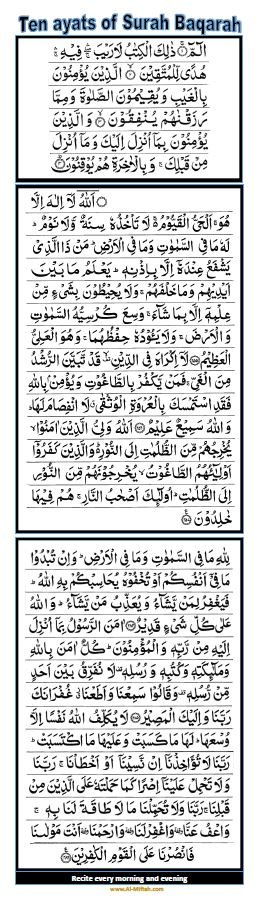 Ten ayats of Surah Baqarah
الٓمّٓ ۚ ذٰلِكَ الْكِتٰبُ لَا رَيْبَ ۛ فِيْهِ ۛ
هُدًى لِّلْمُتَّقِيْنَ ۙ الَّذِيْنَ يُؤْمِنُوْنَ
بِالْغَيْبِ وَيُقِيْمُوْنَ الصَّلٰوةَ وَمِمَّا
رَزَقْنٰهُمْ يُنْفِقُوْنَ ۙ وَالَّذِيْنَ
يُؤْمِنُوْنَ بِمَآ اُنْزِلَ اِلَيْكَ وَمَآ اُنْزِلَ
مِنْ قَبْلِكَ ۚ وَبِالْاٰخِرَةِ هُمْ يُوْقِنُوْنَ
اَللّٰهُ لَآ اِلٰهَ اِلَّا
هُوَ ۚ اَلْحَيُّ الْقَيُّوْمُ ۚ لَا تَأْخُذُهٗ سِنَةٌ وَّلَا نَوْمٌ ؕ
لَهٗ مَا فِي السَّمٰوٰتِ وَمَا فِي الْاَرْضِ ؕ مَنْ ذَا الَّذِيْ
يَشْفَعُ عِنْدَهٗٓ اِلَّا بِاِذْنِهٖ ؕ يَعْلَمُ مَا بَيْنَ
اَيْدِيْهِمْ وَمَا خَلْفَهُمْ ۚ وَلَا يُحِيْطُوْنَ بِشَيْءٍ مِّنْ
عِلْمِهٖٓ اِلَّا بِمَا شَآءَ ۚ وَسِعَ كُرْسِيُّهُ السَّمٰوٰتِ
وَالْاَرْضَ ۚ وَلَا يَئُوْدُهٗ حِفْظُهُمَا ۚ وَهُوَ الْعَلِيُّ
الْعَظِيْمُ لَآ اِكْرَاهَ فِي الدِّيْنِ ۙ قَدْ تَّبَيَّنَ الرُّشْدُ
مِنَ الْغَيِّ ۚ فَمَنْ يَّكْفُرْ بِالطَّاغُوْتِ وَيُؤْمِنْۢ بِاللّٰهِ
فَقَدِ اسْتَمْسَكَ بِالْعُرْوَةِ الْوُثْقٰى ۗ لَا انْفِصَامَ لَهَا ؕ
وَاللّٰهُ سَمِيْعٌ عَلِيْمٌ اَللّٰهُ وَلِيُّ الَّذِيْنَ اٰمَنُوْا ۙ
يُخْرِجُهُمْ مِّنَ الظُّلُمٰتِ اِلَى النُّوْرِ ؕ وَالَّذِيْنَ كَفَرُوْٓا
اَوْلِيٰٓئُهُمُ الطَّاغُوْتُ ۙ يُخْرِجُوْنَهُمْ مِّنَ النُّوْرِ
اِلَى الظُّلُمٰتِ ؕ اُولٰٓئِكَ اَصْحٰبُ النَّارِ ۚ هُمْ فِيْهَا
خٰلِدُوْنَ
لِلّٰهِ مَا فِي السَّمٰوٰتِ وَمَا فِي الْاَرْضِ ؕ وَاِنْ تُبْدُوْا
مَا فِيْٓ اَنْفُسِكُمْ اَوْ تُخْفُوْهُ يُحَاسِبْكُمْ بِهِ اللّٰهُ ؕ
فَيَغْفِرُ لِمَنْ يَّشَآءُ وَيُعَذِّبُ مَنْ يَّشَآءُ ؕ وَاللّٰهُ
عَلٰى كُلِّ شَيْءٍ قَدِيْرٌ اٰمَنَ الرَّسُوْلُ بِمَآ اُنْزِلَ
اِلَيْهِ مِنْ رَّبِّهٖ وَالْمُؤْمِنُوْنَ ؕ كُلٌّ اٰمَنَ بِاللّٰهِ
وَمَلٰٓئِكَتِهٖ وَكُتُبِهٖ وَرُسُلِهٖ ۟ لَا نُفَرِّقُ بَيْنَ اَحَدٍ
مِّنْ رُّسُلِهٖ ۟ وَقَالُوْا سَمِعْنَا وَاَطَعْنَا ٭۫ غُفْرَانَكَ
رَبَّنَا وَاِلَيْكَ الْمَصِيْرُ لَا يُكَلِّفُ اللّٰهُ نَفْسًا اِلَّا
وُسْعَهَا ؕ لَهَا مَا كَسَبَتْ وَعَلَيْهَا مَا اكْتَسَبَتْ ؕ
رَبَّنَا لَا تُؤَاخِذْنَآ اِنْ نَّسِيْنَآ اَوْ اَخْطَاْنَا ۚ رَبَّنَا
وَلَا تَحْمِلْ عَلَيْنَآ اِصْرًا كَمَا حَمَلْتَهٗ عَلَى الَّذِيْنَ مِنْ
قَبْلِنَا ۚ رَبَّنَا وَلَا تُحَمِّلْنَا مَا لَا طَاقَةَ لَنَا بِهٖ ۚ
وَاعْفُ عَنَّا ۥ وَاغْفِرْ لَنَا ۥ وَارْحَمْنَا ۥ اَنْتَ مَوْلٰىنَا
فَانْصُرْنَا عَلَى الْقَوْمِ الْكٰفِرِيْنَ
Recite every morning and evening
www.Al-Miftah.com